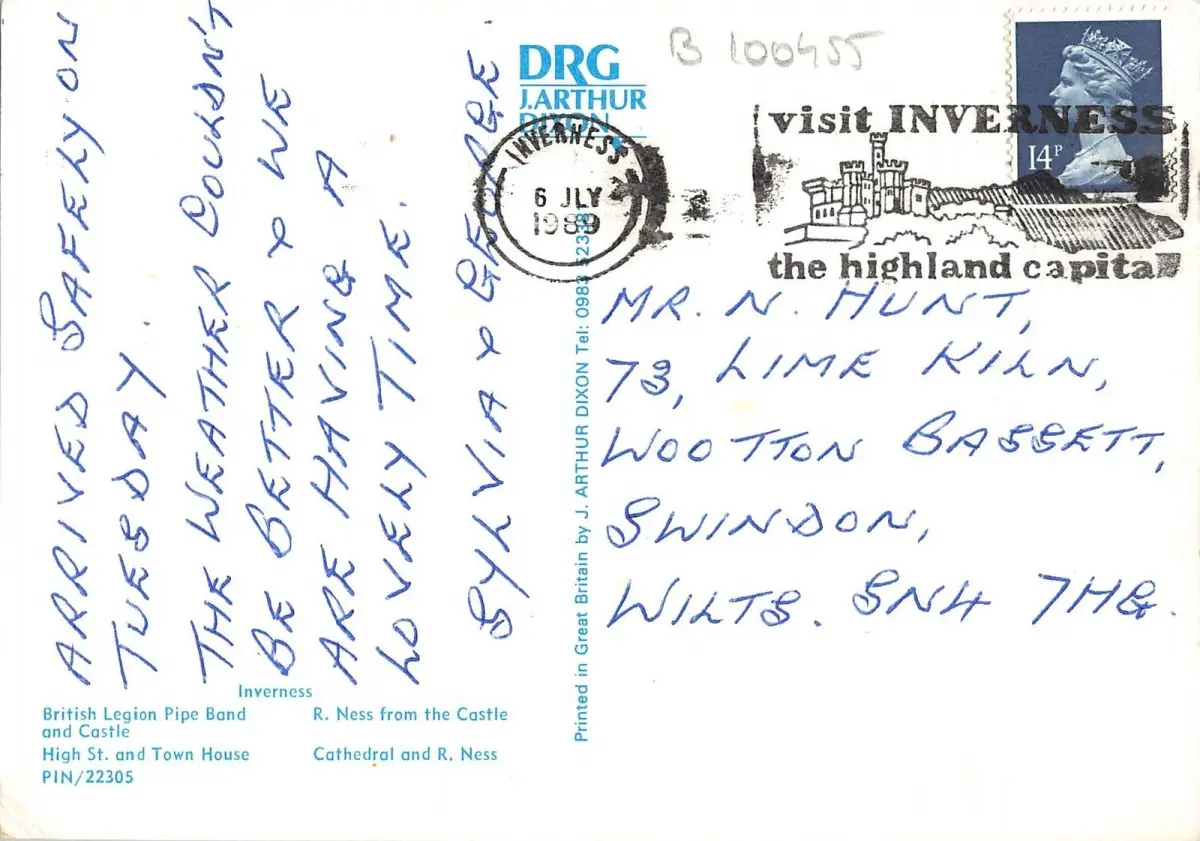 ARRIVED SAFELY ON
TUESDAY.
THE WEATHER COULDN'T
BE BETTER & WE
ARE HAVING A
LOVELY TIME.
SYLVIA & GEORGE.
Inverness
British Legion Pipe Band
and Castle
R. Ness from the Castle
High St. and Town House
Cathedral and R. Ness
PIN/22305
DRG
J.ARTHUR
DIXON
Printed in Great Britain by J. ARTHUR DIXON Tel: 0983
B 100455
INVERNESS
6 JLY
1989
visit INVERNESS
the highland capital
14P
MR. N. HUNT,
73, LIME KILN,
WOOTTON BASSETT,
SWINDON,
WILTS. SN4 7HG.